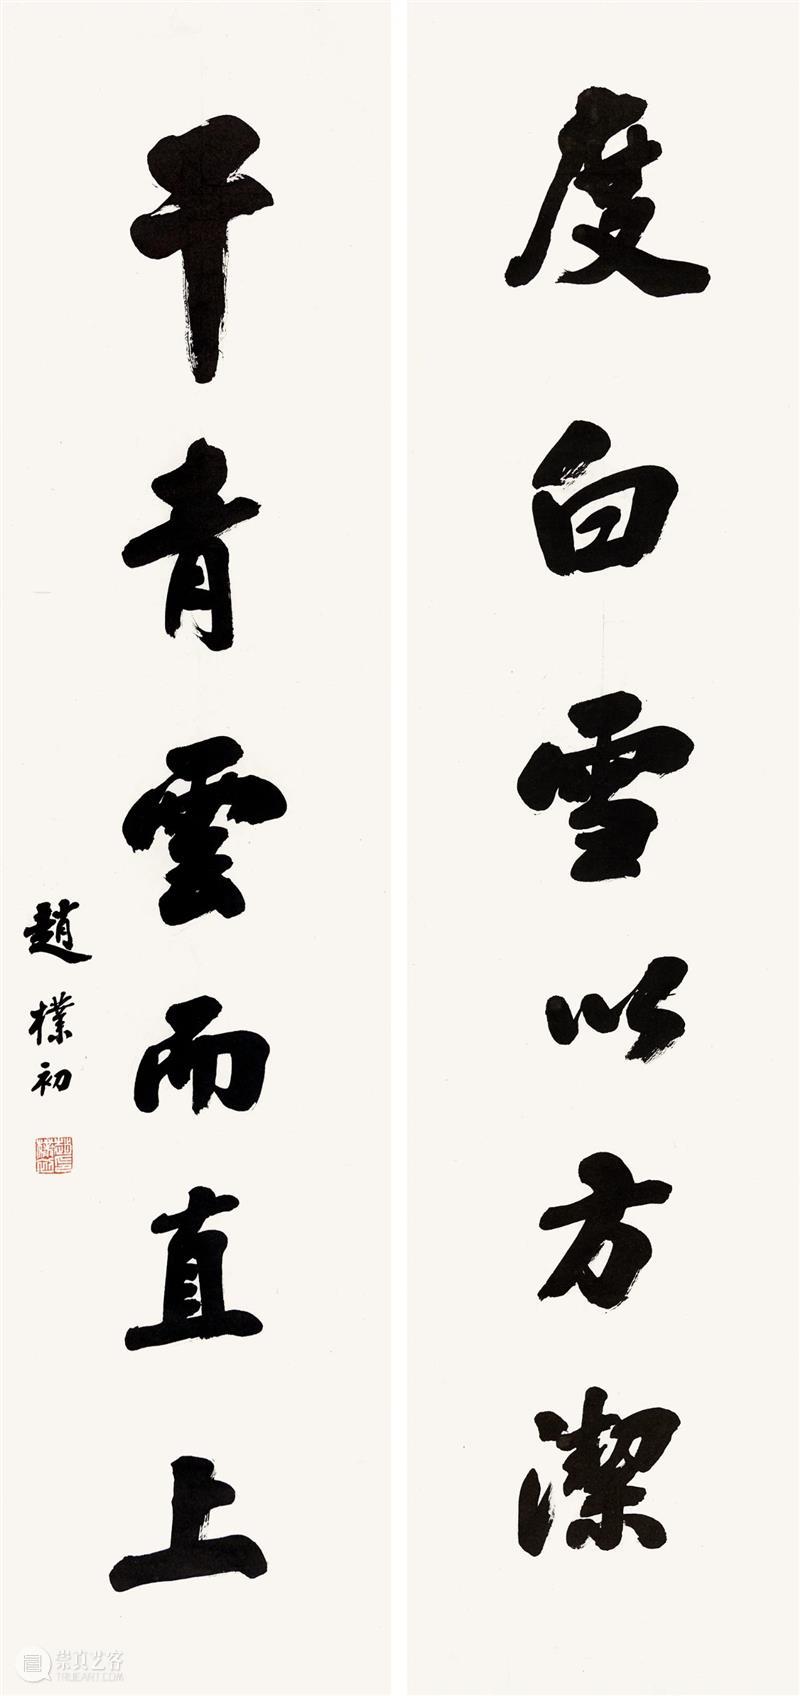 度白雪以方潔
干青雲而直上
趙樸初
崇真艺客
TRUEART.COM